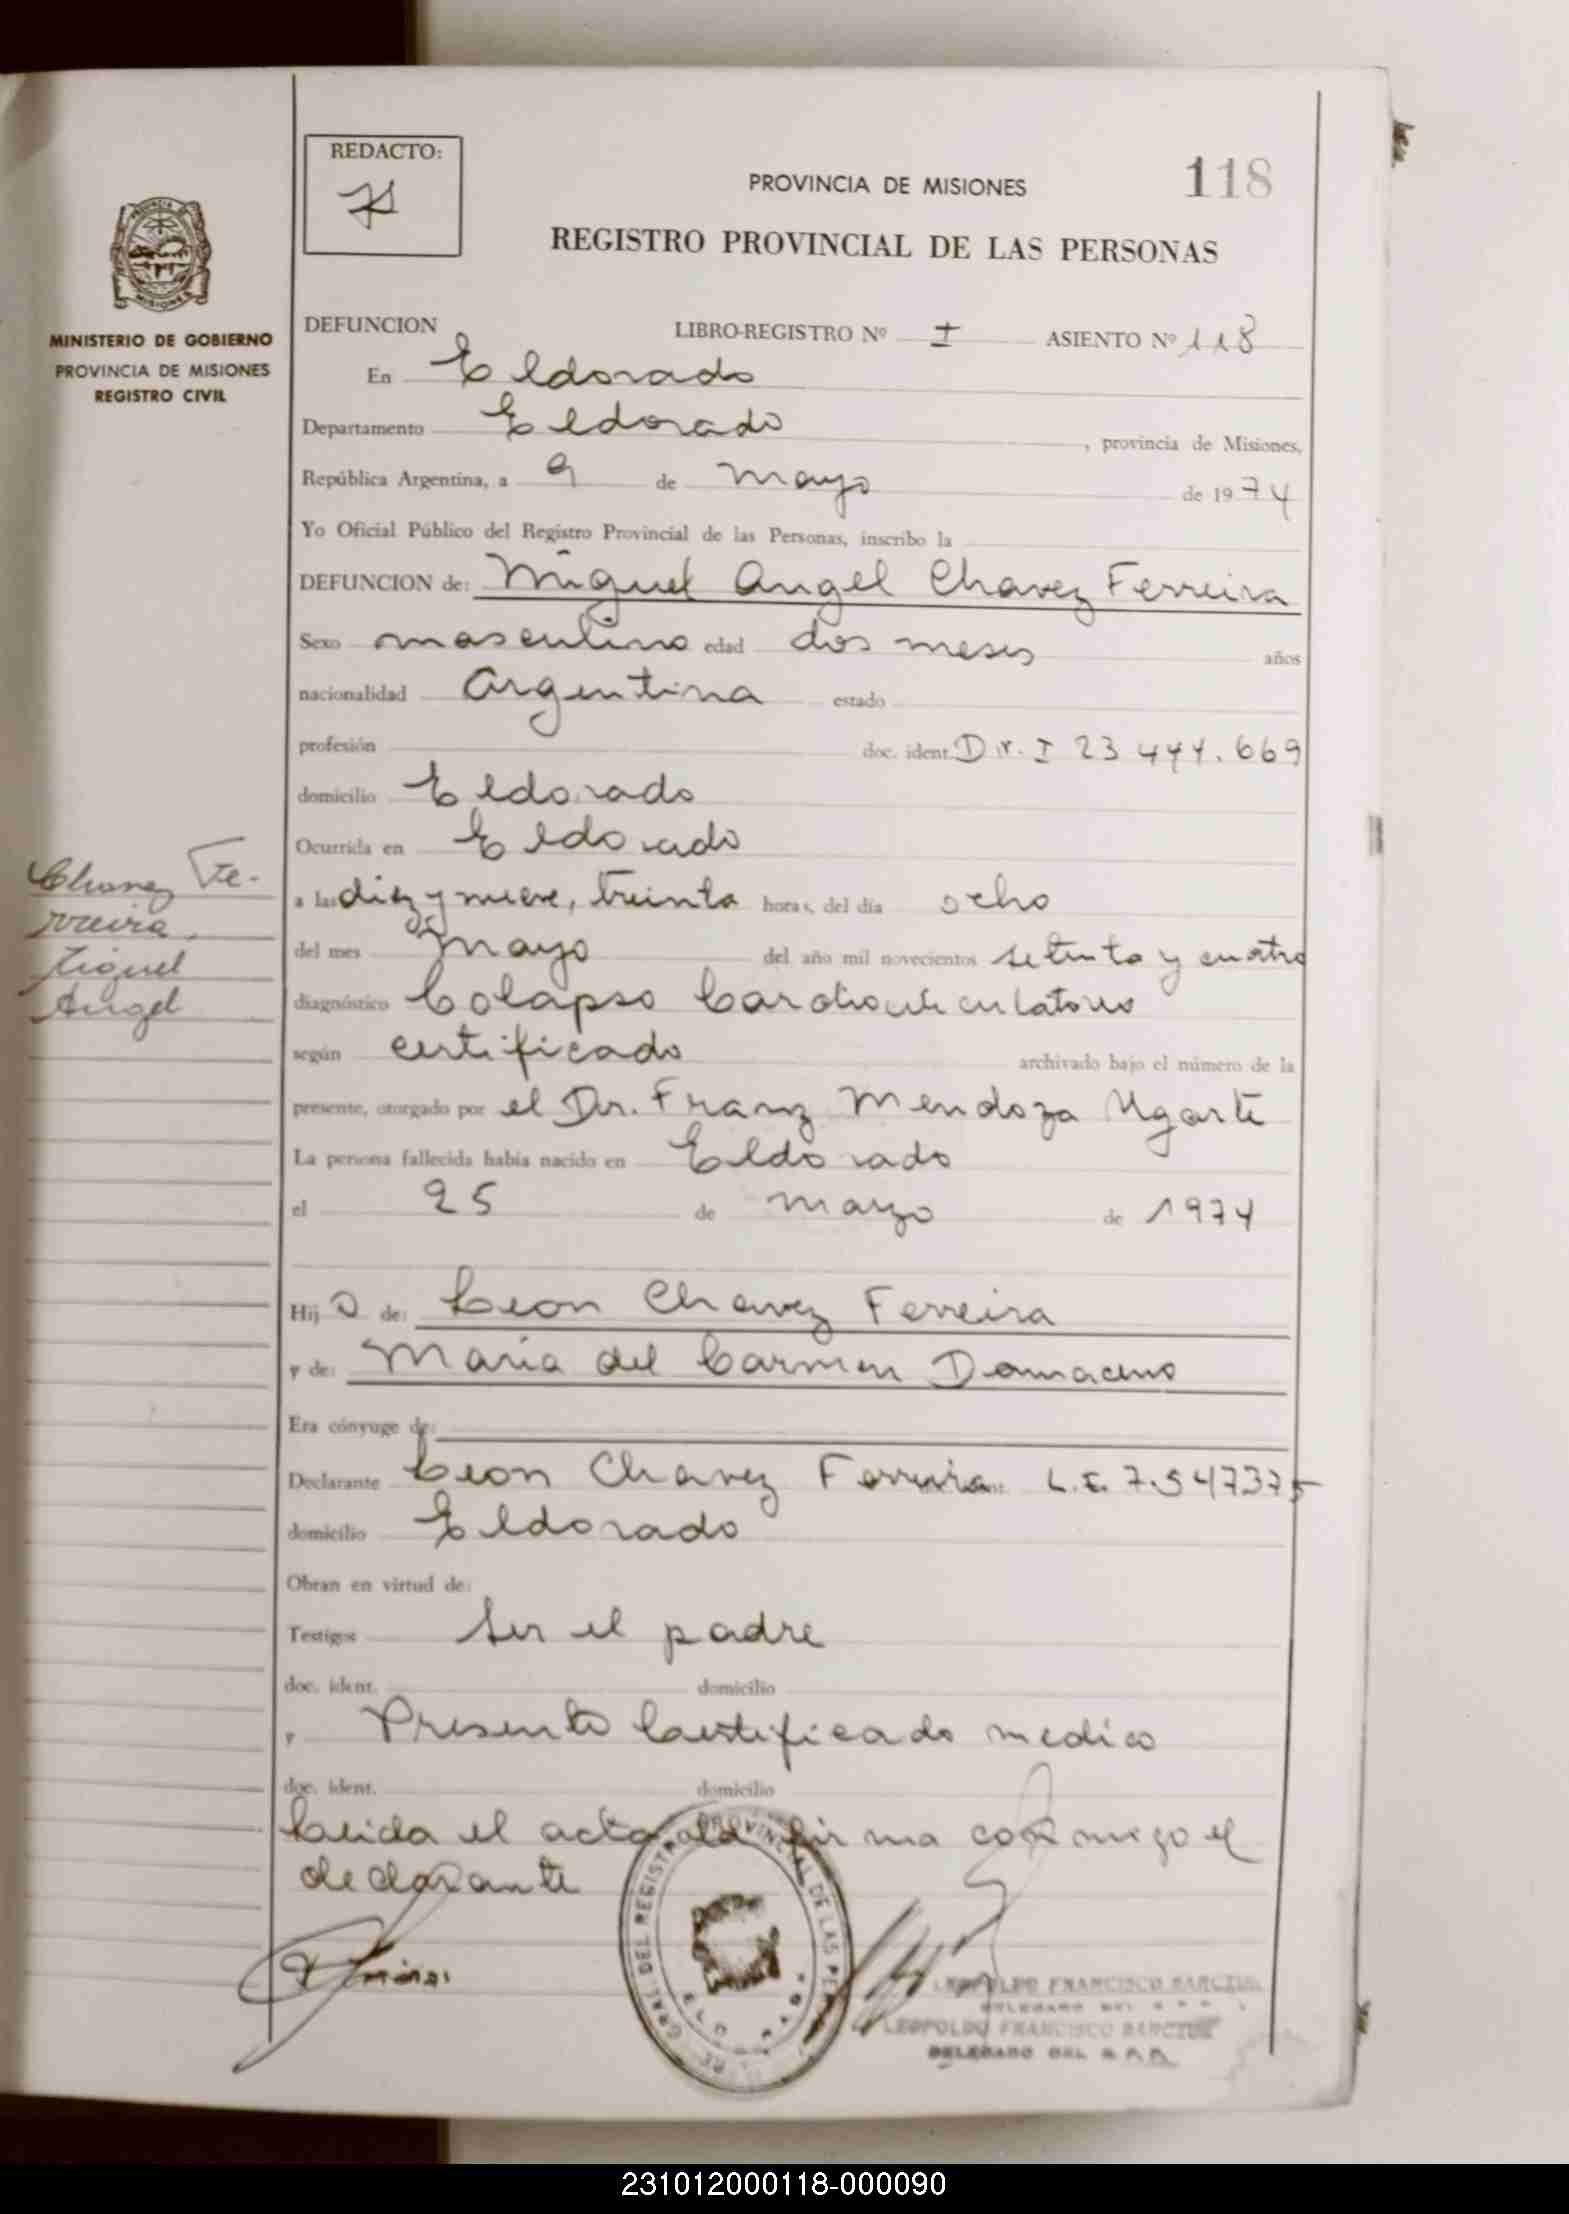 118
REDACTO:
PROVINCIA DE MISIONES
REGISTRO PROVINCIAL DE LAS PERSONAS
MINISTERIO DE GOBIERNO
PROVINCIA DE MISIONES
REGISTRO CIVIL
DEFUNCION LIBRO-REGISTRO Nº I ASIENTO Nº 118
En Eldorado
Departamento Eldorado, provincia de Misiones,
República Argentina, a 9 de mayo de 1974
Yo Oficial Público del Registro Provincial de las Personas, inscribo la
DEFUNCION de: Miguel Angel Chavez Ferreira
Sexo masculino edad dos meses años
nacionalidad Argentina estado
profesión doc. ident. D.N.I 23.444.669
domicilio Eldorado
Ocurrida en Eldorado
Chavez Fe-
rreira,
Miguel
Angel
a las diez y nueve, treinta horas, del día ocho
del mes de mayo del año mil novecientos setenta y cuatro
diagnóstico Colapso Cardiocirculatorio
según certificado archivado bajo el número de la
presente, otorgado por el Dr. Franz Mendoza Ugarte
La persona fallecida había nacido en Eldorado
el 25 de marzo de 1974
Hij o de: Leon Chavez Ferreira
y de: Maria del Carmen Damaceno
Era cónyuge de:
Declarante Leon Chavez Ferreira L.E. 7.547375
domicilio Eldorado
Obran en virtud de:
Testigos Ser el padre
doc. ident. domicilio
y Presento Certificado medico
doc. ident. domicilio
Leida el acta la firma conmigo el
declarante
GRAL. DEL REGISTRO PROVINCIAL DE LAS PER
LEOPOLDO FRANCISCO
LEOPOLDO FRANCISCO
DELEGADO DEL R.P.P.
231012000118-000090